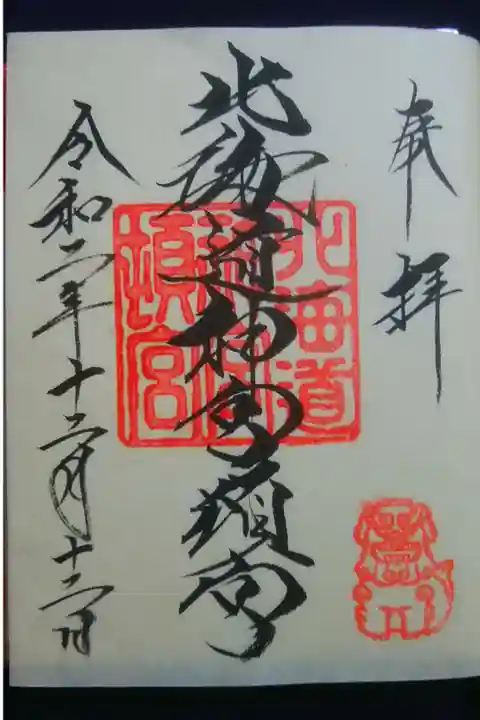 奉拝
北海道神宮頓宮
北海道
神宮
頓宮
令和二年十二月十二日